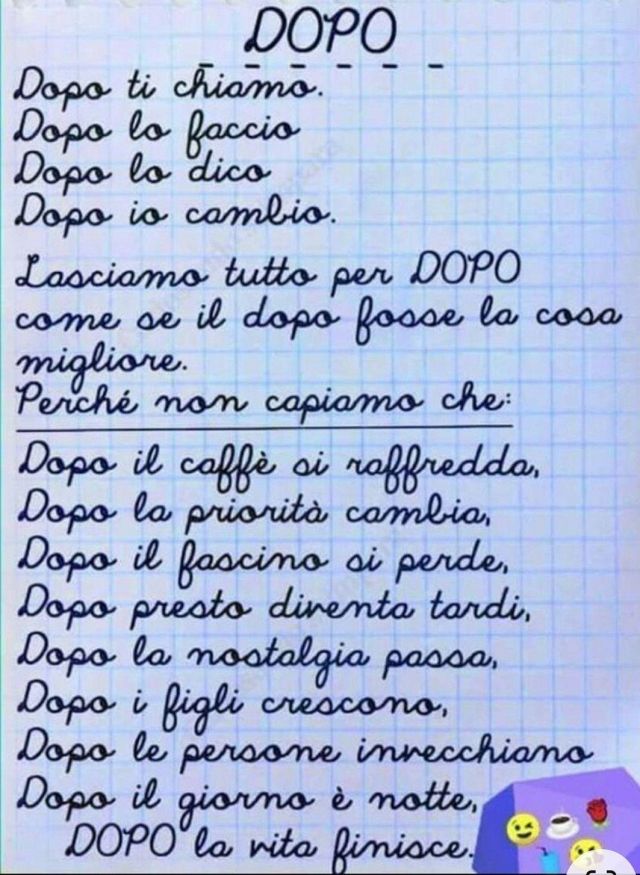 DOPO
Dopo ti chiamo.
Dopo lo faccio
Dopo lo dico
Dopo io cambio.
Lasciamo tutto per DOPO
come se il dopo fosse la cosa
migliore.
Perché non capiamo che:
Dopo il caffè si raffredda,
Dopo la priorità cambia,
Dopo il fascino si perde,
Dopo presto diventa tardi,
Dopo la nostalgia passa,
Dopo i figli crescono,
Dopo le persone invecchiano
Dopo il giorno è notte,
DOPO la vita finisce.